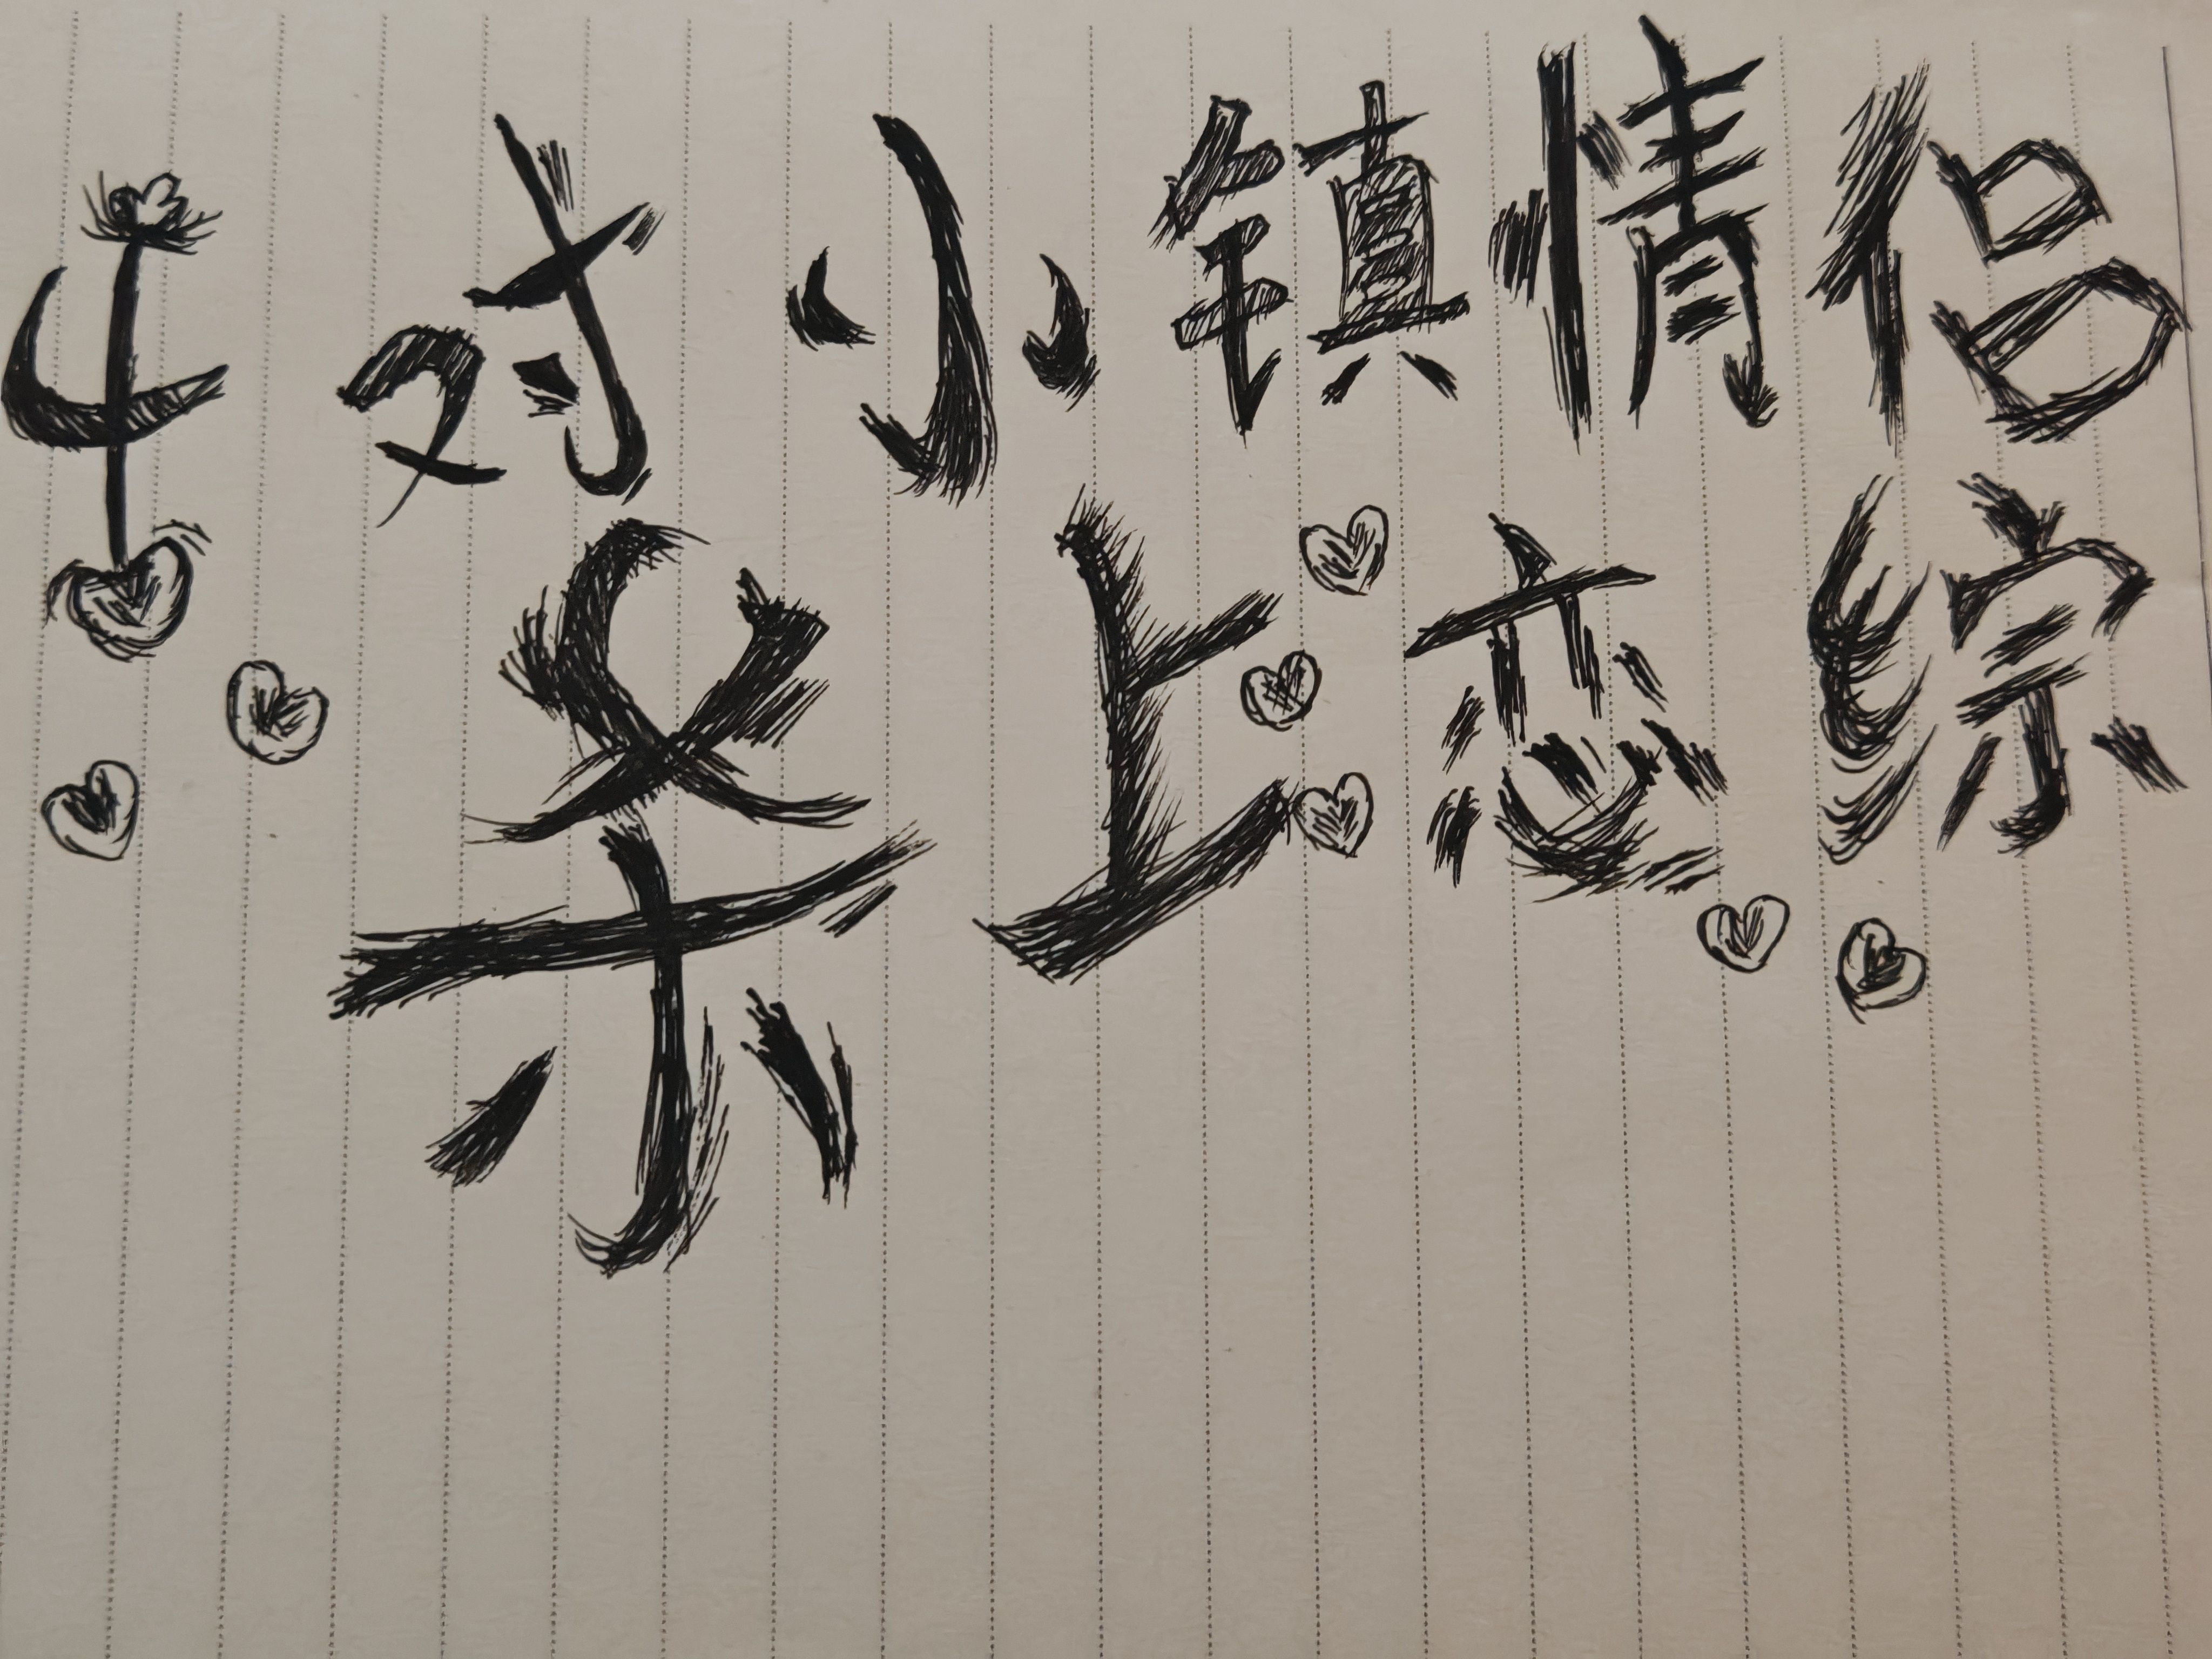 4对小镇情侣
杀上恋综